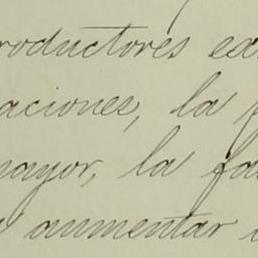 productores
aciones, la
mayor, la
aumentar